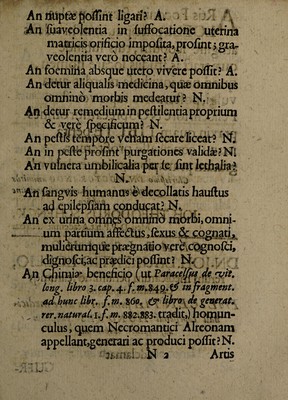 An nuptæ possint ligari? A.
An suaveolentia in suffocatione uterina
matricis orificio imposita, prosint; gra-
veolentia verò noceant? A.
An foemina absque utero vivere possit? A.
An detur aliqualis medicina, quæ omnibus
omninò morbis medeatur? N.
An detur remedium in pestilentia proprium
& verè specificum? N.
An pestis tempore venam secare liceat? N.
An in peste prosint purgationes validæ? N.
An vulnera umbilicalia per se sint lethalia?
N.
An sangvis humanus è decollatis haustus
ad epilepsiam conducat? N.
An ex urina omnes omninò morbi, omni-
um partium affectus, sexus & cognati,
mulierumque prægnatio verè cognosci,
dignosci, ac prædici possint? N.
An Chimiæ beneficio (ut Paracelsus de vit.
long. libro 3. cap. 4. f. m. 849. & in fragment.
ad hunc libr. f. m. 860. & libro de generat.
rer. natural. 1. f. m. 882.883. tradit,) homun-
culus, quem Necromantici Alreonam
appellant, generari ac produci possit? N.
N 2 Artis